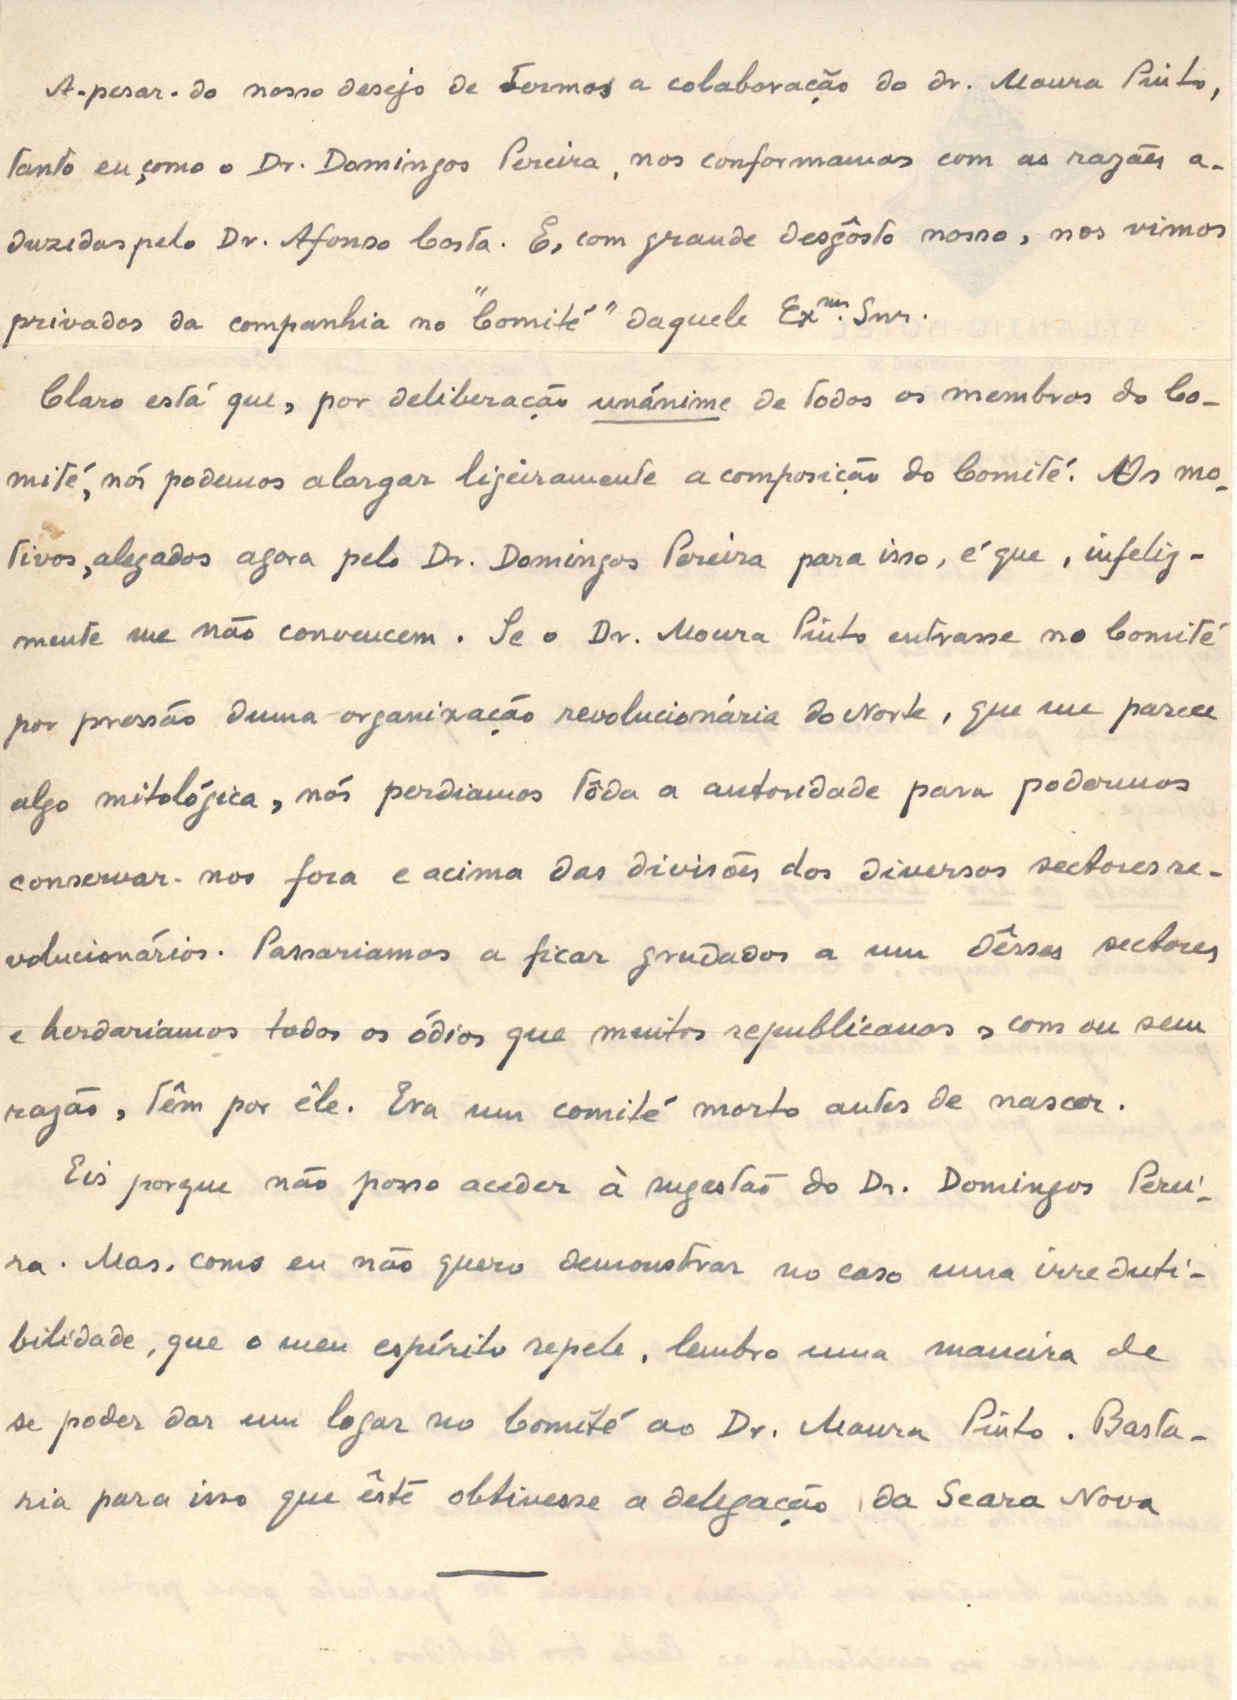 A-pesar-do nosso desejo de termos a colaboração do dr. Moura Pinto,
tanto eu, como o Dr. Domingos Pereira, nos conformamos com as razões a-
duzidas pelo Dr. Afonso Costa. E, com grande desgôsto nosso, nos vimos
privados da companhia no "Comité" daquele Exmo. Snr.
Claro está que, por deliberação unánime de todos os membros do Co-
mité, nós podemos alargar ligeiramente a composição do Comité. Os mo-
tivos, alegados agora pelo Dr. Domingos Pereira para isso, é que, infeliz-
mente me não convencem. Se o Dr. Moura Pinto entrasse no Comité
por pressão duma organização revolucionária do Norte, que me parece
algo mitológica, nós perdiamos tôda a autoridade para podermos
conservar-nos fora e acima das divisões dos diversos sectores re-
volucionários. Passariamos a ficar grudados a um dêsses sectores
e herdariamos todos os ódios que muitos republicanos, com ou sem
razão, têm por êle. Era um comité morto antes de nascer.
Eis porque não posso aceder à sugestão do Dr. Domingos Perei-
ra. Mas, como eu não quero demonstrar no caso uma irreduti-
bilidade, que o meu espírito repele, lembro uma maneira de
se poder dar um logar no Comité ao Dr. Moura Pinto. Basta-
ria para isso que êste obtivesse a delegação da Seara Nova